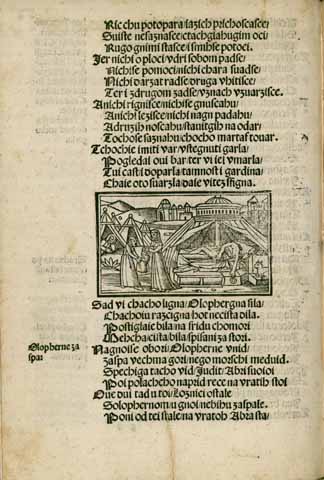 Ric chu potopara iazich prichoseasce:
Suiste nesaznasce / etachgiahugim oci
Rugo gnimi stasce / i smihse potoci.
Jer nichi oploci / vdri sobom padse /
Nichise pomoci / nichi chara suadse /
Nichi darzat radse / druga vhitisce /
Ter i zdrugom zadse / vznach vznarzisce.
A nichi rignisce / nichise gnuscahu /
A nichi lezisce / nichi nagn padahu /
A idruzih noscahu / stauitgih na odar /
Tochose saznahu / chocho martaf touar.
Tchochie imiti var / vstegnuti garla /
Pogledai oui bar ter vi iei vmarla /
Tui casti i doparla tamnosti i gardina /
Chaie oto suarzla / dase vitez sfigna.
Sad vi chacho ligna / Olophergna sila /
Chachoiu razcigna hot necista dila.
Postiglaie bila na fridu chomori
Mehcha cista / bila spisani za stori.
Olopherne za
spa:
Nagnoise obori / Olopherne vnid /
zaspa vechma gori / nego morschi meduid.
Spechiga tacho vid / Judit / Abri suoioi
Poi polachcho naprid rece na vratih stoi
One dui tad u toi / loznici ostale
Solophernom u gnoi / nehihu zaspale.
Poni od tei stale / na vratoh Abra sta /